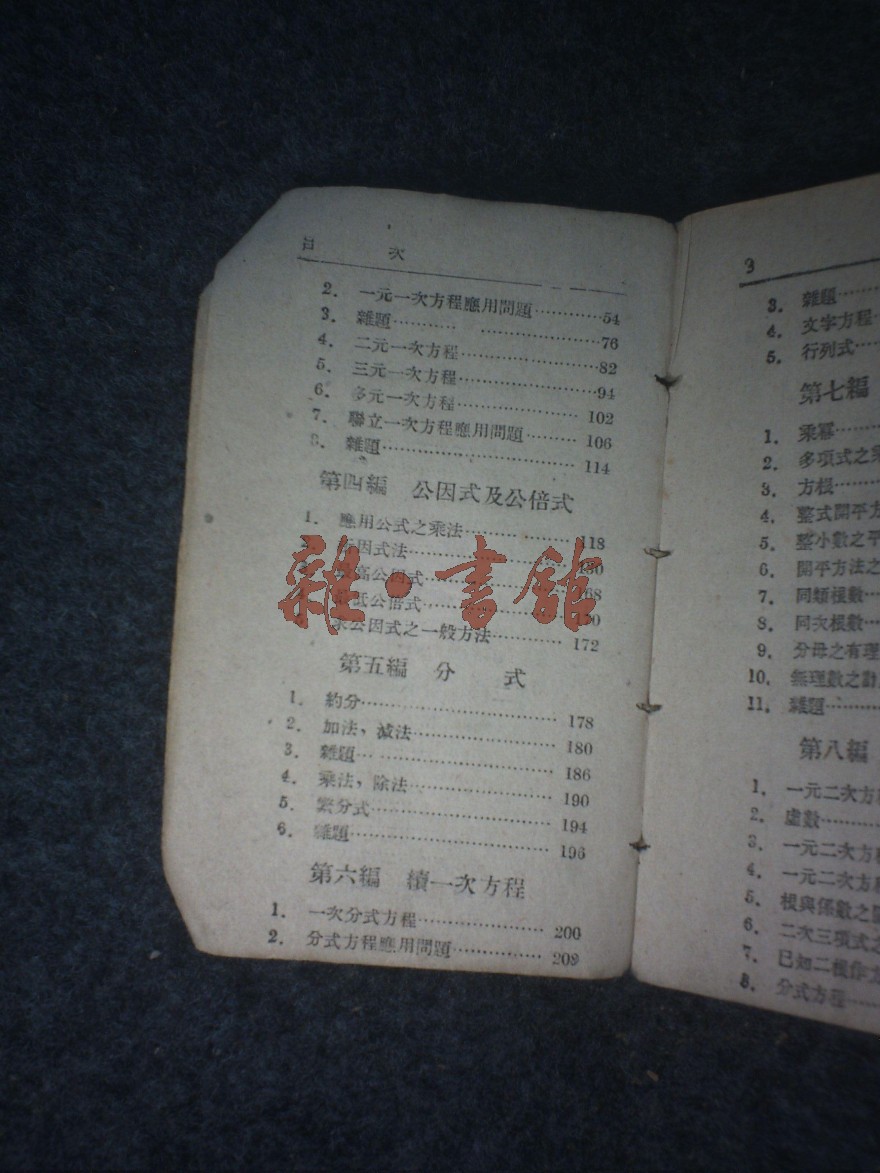 目 次
2. 一元一次方程應用問題…………54
3. 雜題………… …………………76
4. 二元一次方程…………………82
5. 三元一次方程…………………94
6. 多元一次方程………………102
7. 聯立一次方程應用問題………106
8. 雜題…………………………114
第四編 公因式及公倍式
1. 應用公式之乘法……………118
因式法…………………
高公因式………………168
低公倍式………………170
求公因式之一般方法…………172
第五編 分 式
1. 約分…………………………178
2. 加法、減法…………………180
3. 雜題…………………………186
4. 乘法、除法…………………190
5. 繁分式………………………194
6. 雜題…………………………196
第六編 續一次方程
1. 一次分式方程………………200
2. 分式方程應用問題……………209
雜·書館
3
3. 雜題……
4. 文字方程…
5. 行列式……
第七編
1. 乘冪……
2. 多項式之乘
3. 方根……
4. 整式開平方
5. 整小數之平
6. 開平方法之
7. 同類根數…
8. 同次根數…
9. 分母之有理
10. 無理數之計
11. 雜題……
第八編
1. 一元二次方程
2. 虛數……
3. 一元二次方程
4. 一元二次方程
5. 根與係數之
6. 二次三項式之
7. 已知二根作
8. 分式方程……